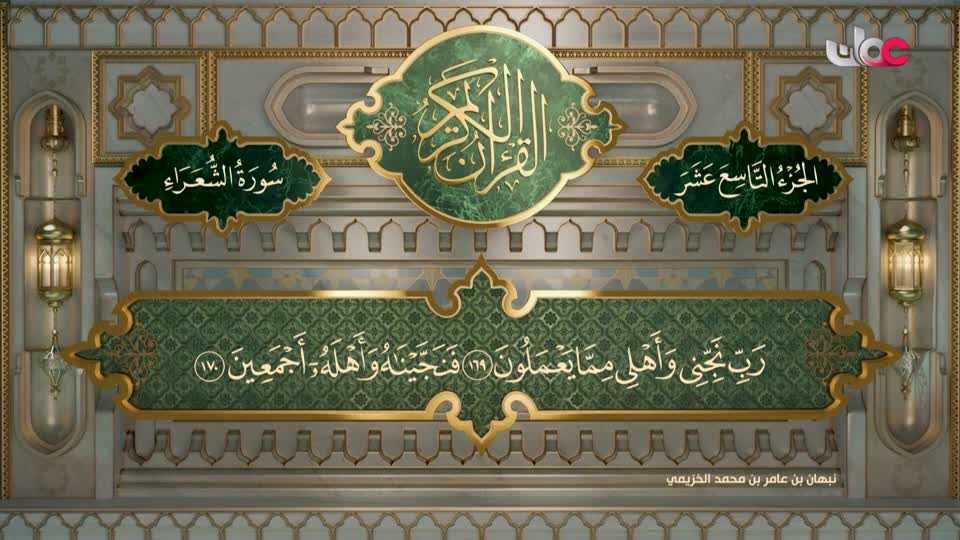 عمان
القرآن الكريم
الجُزْءُ التَّاسِعَ عَشَرَ
سُورَةُ الشُّعَرَاءِ
رَبِّ نَجِّنِي وَأَهْلِي مِمَّا يَعْمَلُونَ ١٦٩ فَنَجَّيْنَٰهُ وَأَهْلَهُۥٓ أَجْمَعِينَ ١٧٠
نبهان بن عامر بن محمد الخزيمي